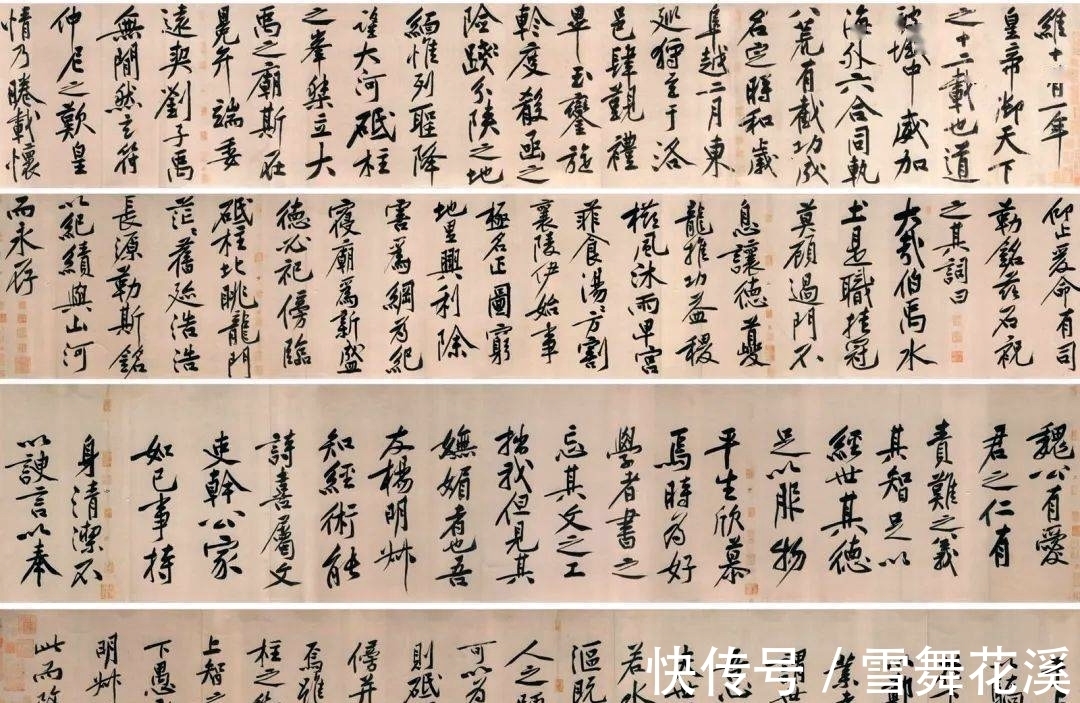 維十有一年
皇帝御天下
之十二載也道
被域中威加
海外六合同軌
八荒有截功成
名定時和歲
阜越二月東
巡狩至于洛
邑肆覲禮
畢玉鑾旋
軫度殽函之
險踐分陝之地
緬惟列聖降
望大河砥柱
之峯桀立大
禹之廟斯在
冕弁端委
遠契劉子禹
無閒然玄符
仲尼之歎皇
情乃睠載懷
仰止爰命有司
勒銘茲石祝
之其詞曰
大哉伯禹水
土是職挂冠
莫顧過門不
息讓德夔
龍推功益稷
櫛風沐雨卑宮
菲食湯〻方割
襄陵伊始事
極名正圖窮
地里興利除
害爲綱爲紀
寢廟爲新盛
德必祀傍臨
砥柱北眺龍門
茫〻舊跡浩浩
長源勒斯銘
以紀績與山河
而永存
魏公有愛
君之仁有
責難之義
其智足以
經世其德
足以服物
平生欣慕
焉時爲好
學者書之
忘其文之工
拙我但見其
嫵媚者也吾
友楊明叔
知經術能
詩喜屬文
吏幹公家
如己事持
身清潔不
以諛言以奉
若水
漚既
人之
可以爲
則砥
傍并
焉雖
柱之
上智之
下愚
明叔
此而
快传号 / 雪舞花溪